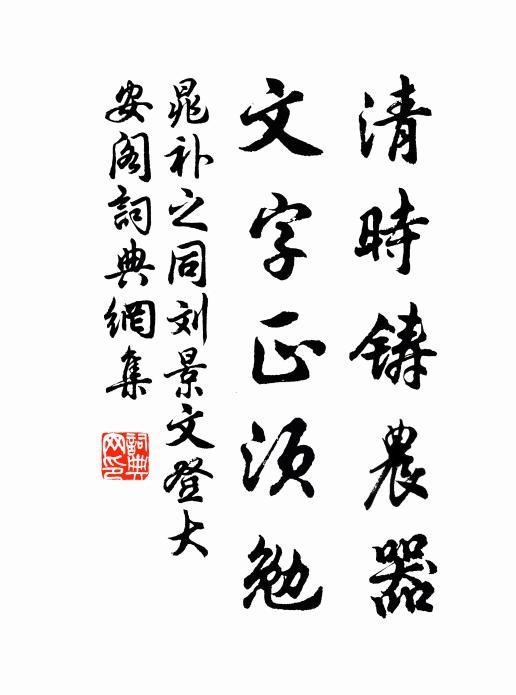 清時鑄農器
文字正須勉
晁补之同刘景文登大
安阁詞典網集
詞典网印